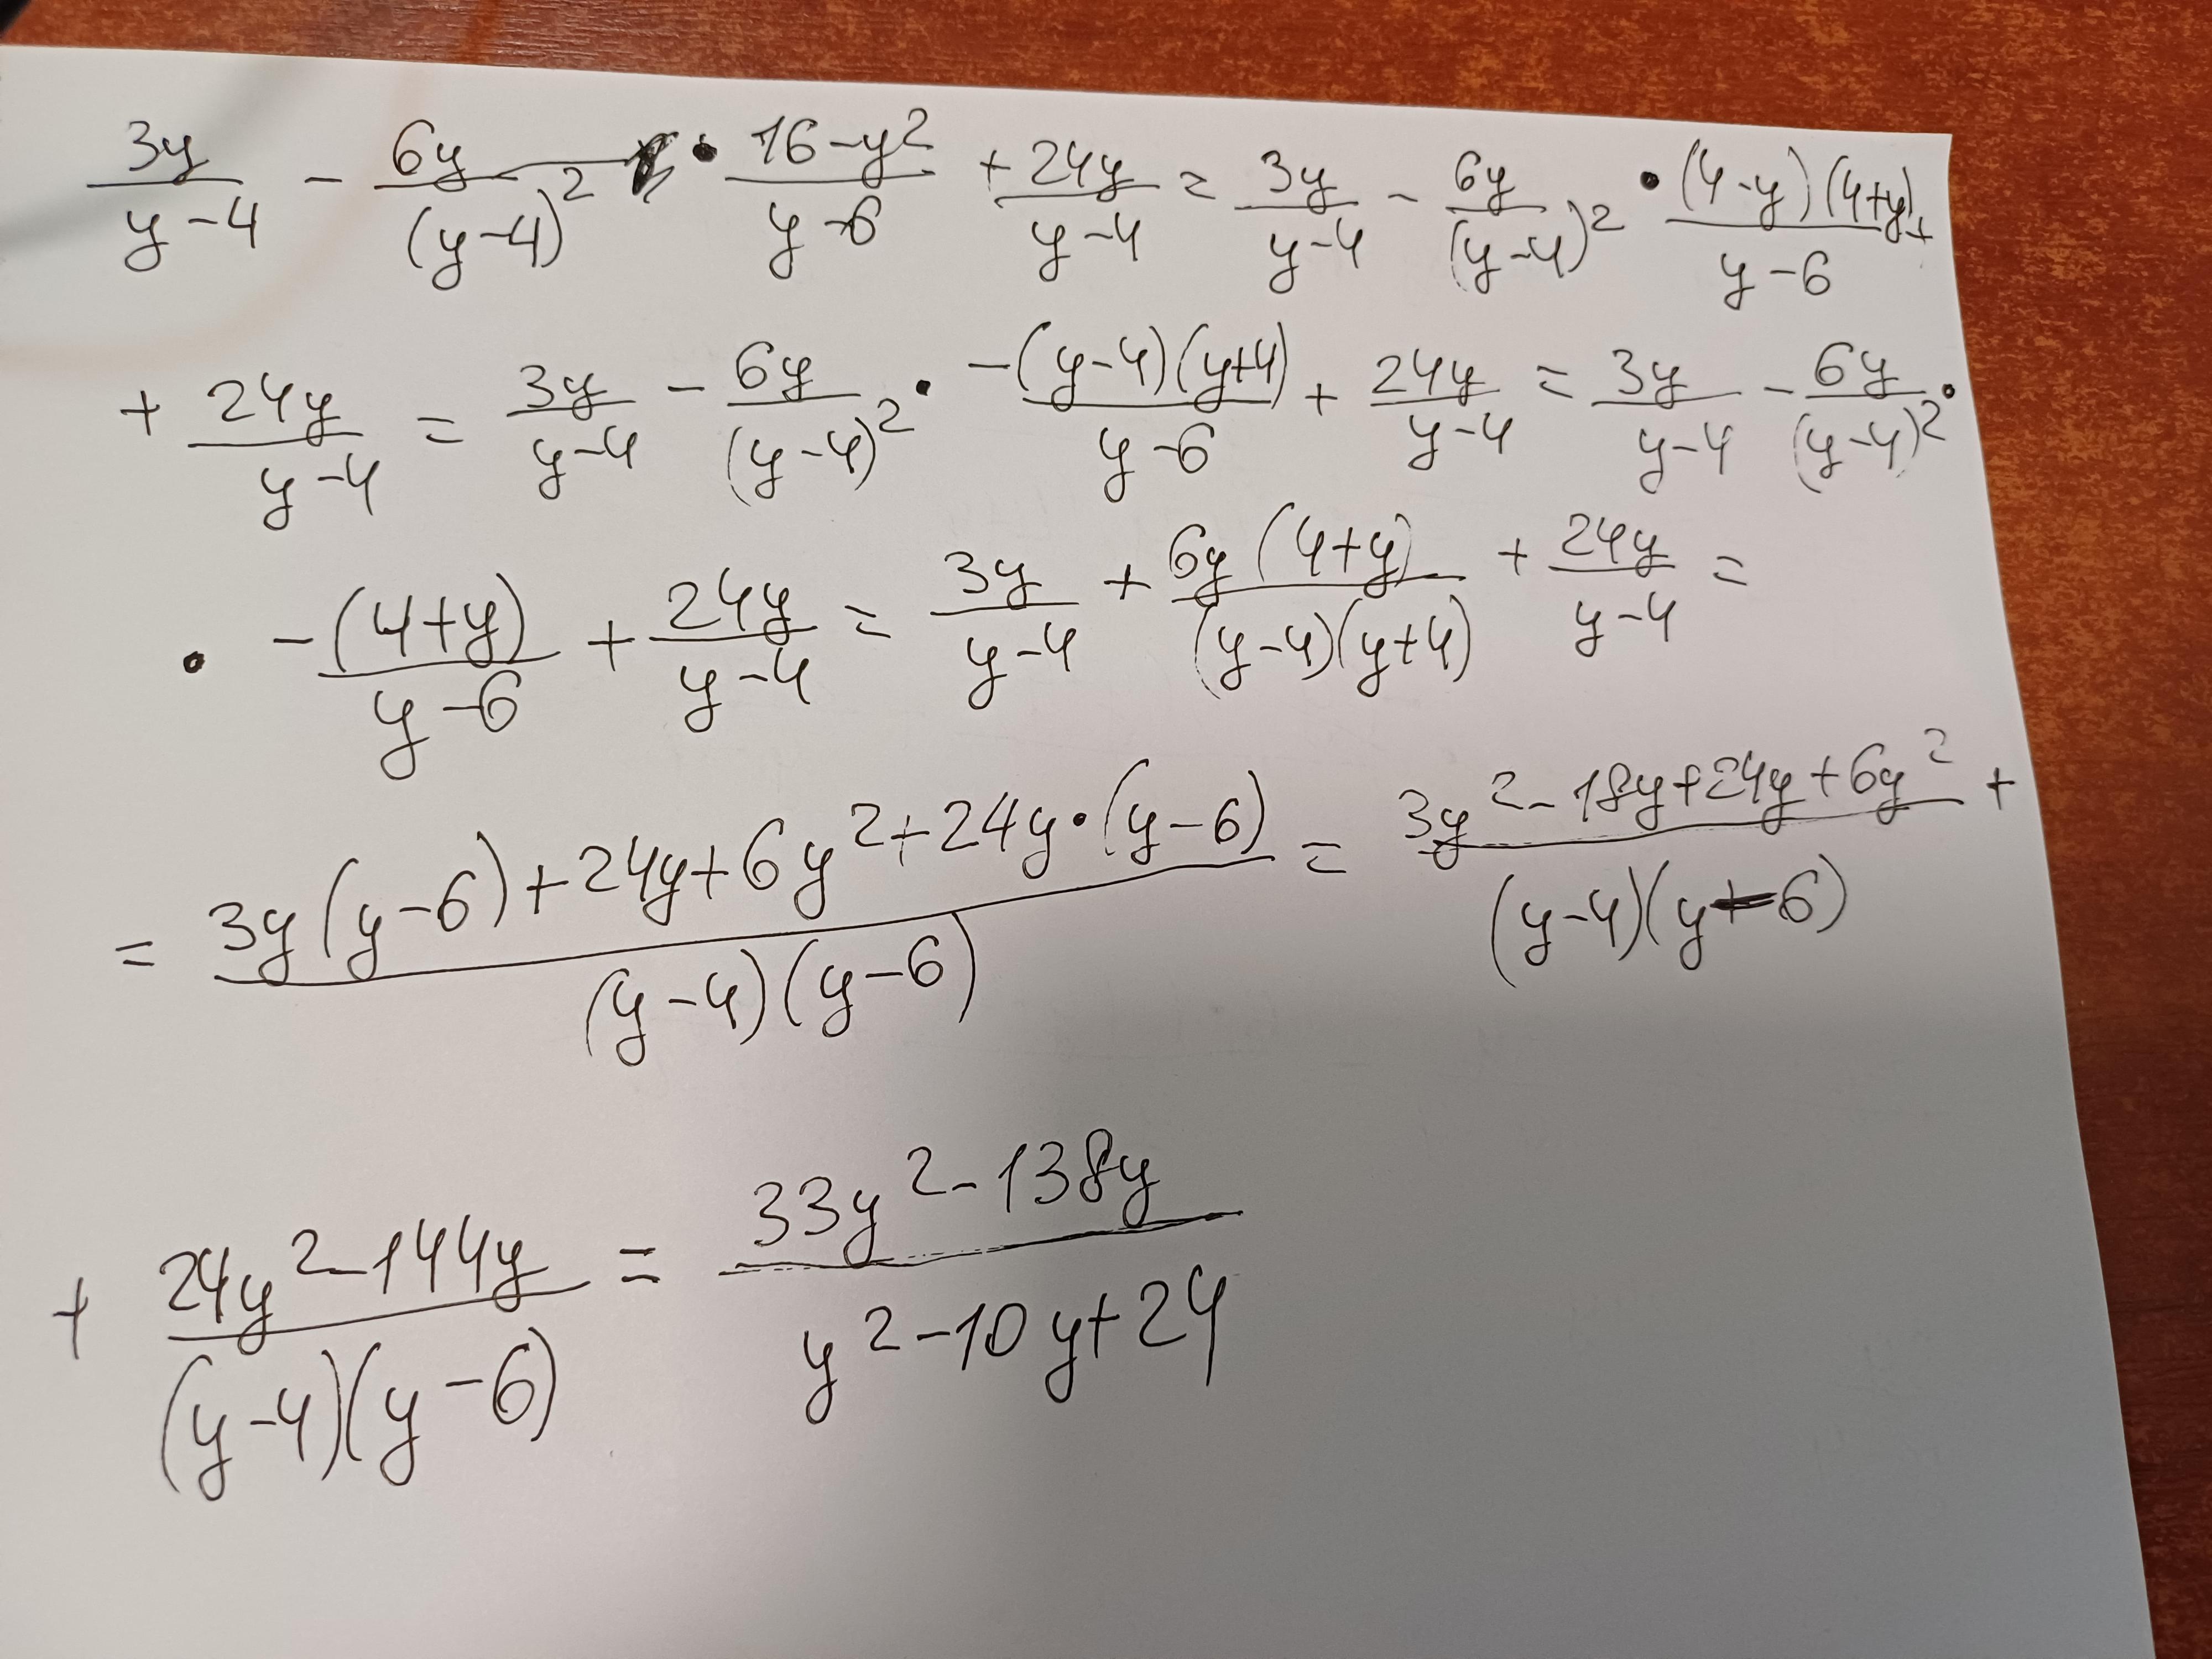 3y/(y-4) - 6y/(y-4)² • (16-y²)/(y-6) + 24y/(y-4) = 3y/(y-4) - 6y/(y-4)² • (4-y)(4+y)/(y-6) +
+ 24y/(y-4) = 3y/(y-4) - 6y/(y-4)² • -(y-4)(y+4)/(y-6) + 24y/(y-4) = 3y/(y-4) - 6y/(y-4)² •
• -(4+y)/(y-6) + 24y/(y-4) = 3y/(y-4) + 6y(4+y)/((y-4)(y+4)) + 24y/(y-4) =
= (3y(y-6)+24y+6y²+24y•(y-6))/((y-4)(y-6)) = (3y²-18y+24y+6y²)/((y-4)(y-6)) +
+ (24y²-144y)/((y-4)(y-6)) = (33y²-138y)/(y²-10y+24)